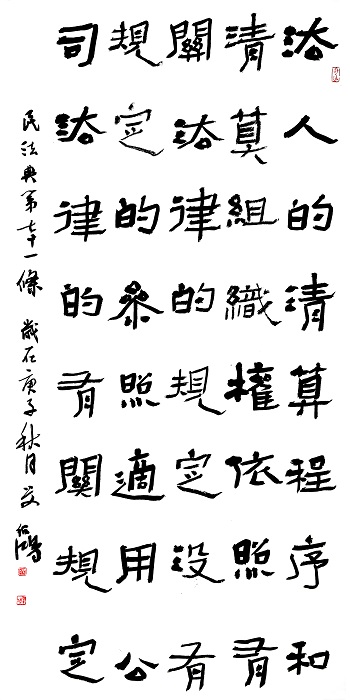 法人的清算程序和
清算組織權依照有
關法律的規定没有
規定的參照適用公
司法律的有關規定
民法典第七十一條 歲在庚子秋月